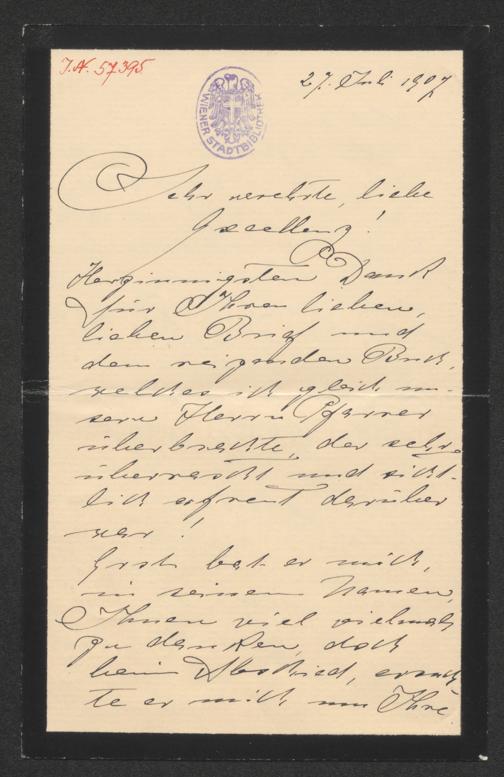 I.N. 57395
27. Juli 1907
WIENER STADTBIBLIOTHEK
Sehr verehrte, liebe
Excellenz!
Herzinnigsten Dank
für Ihren lieben,
lieben Brief und
dem reizenden Buch,
welches ich gleich un-
serm Herrn Pfarrer
überbrachte, der sehr
überrascht und sicht-
lich erfreut darüber
war!
Erst bat er mich,
in seinem Namen,
Ihnen viel vielmals
zu danken, doch
beim Abschied, ersuch
te er mich um Ihre